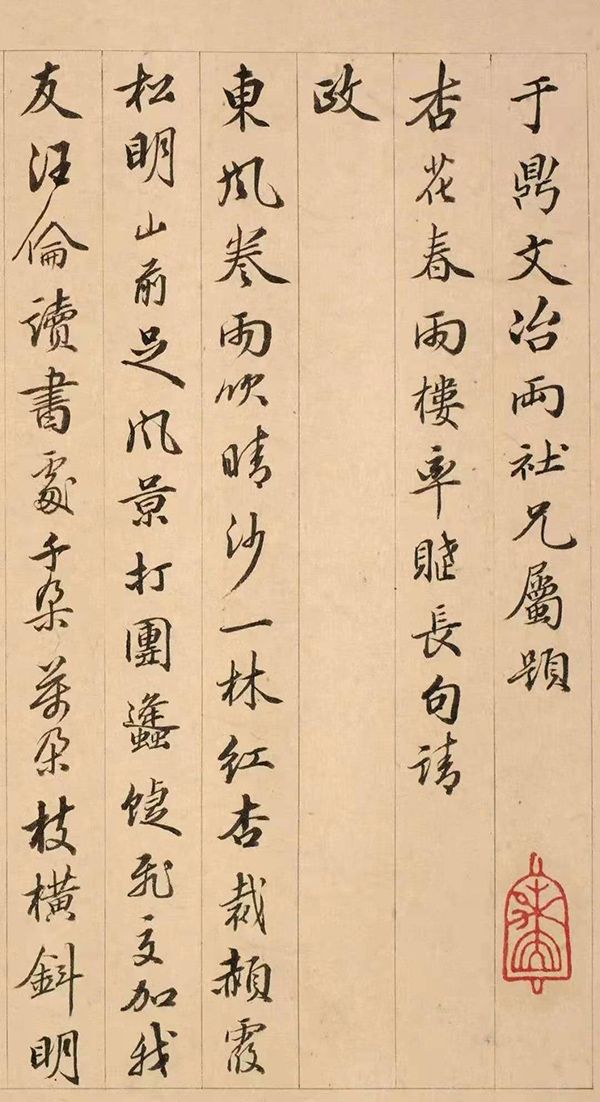 于鼎文冶兩社兄屬題
杏花春雨樓率賦長句請
政
東風捲雨吹晴沙一林紅杏裁赬霞
松明山前足風景打團蠭蜨飛交加我
友汪倫讀書處千朵萬朵枝橫斜明